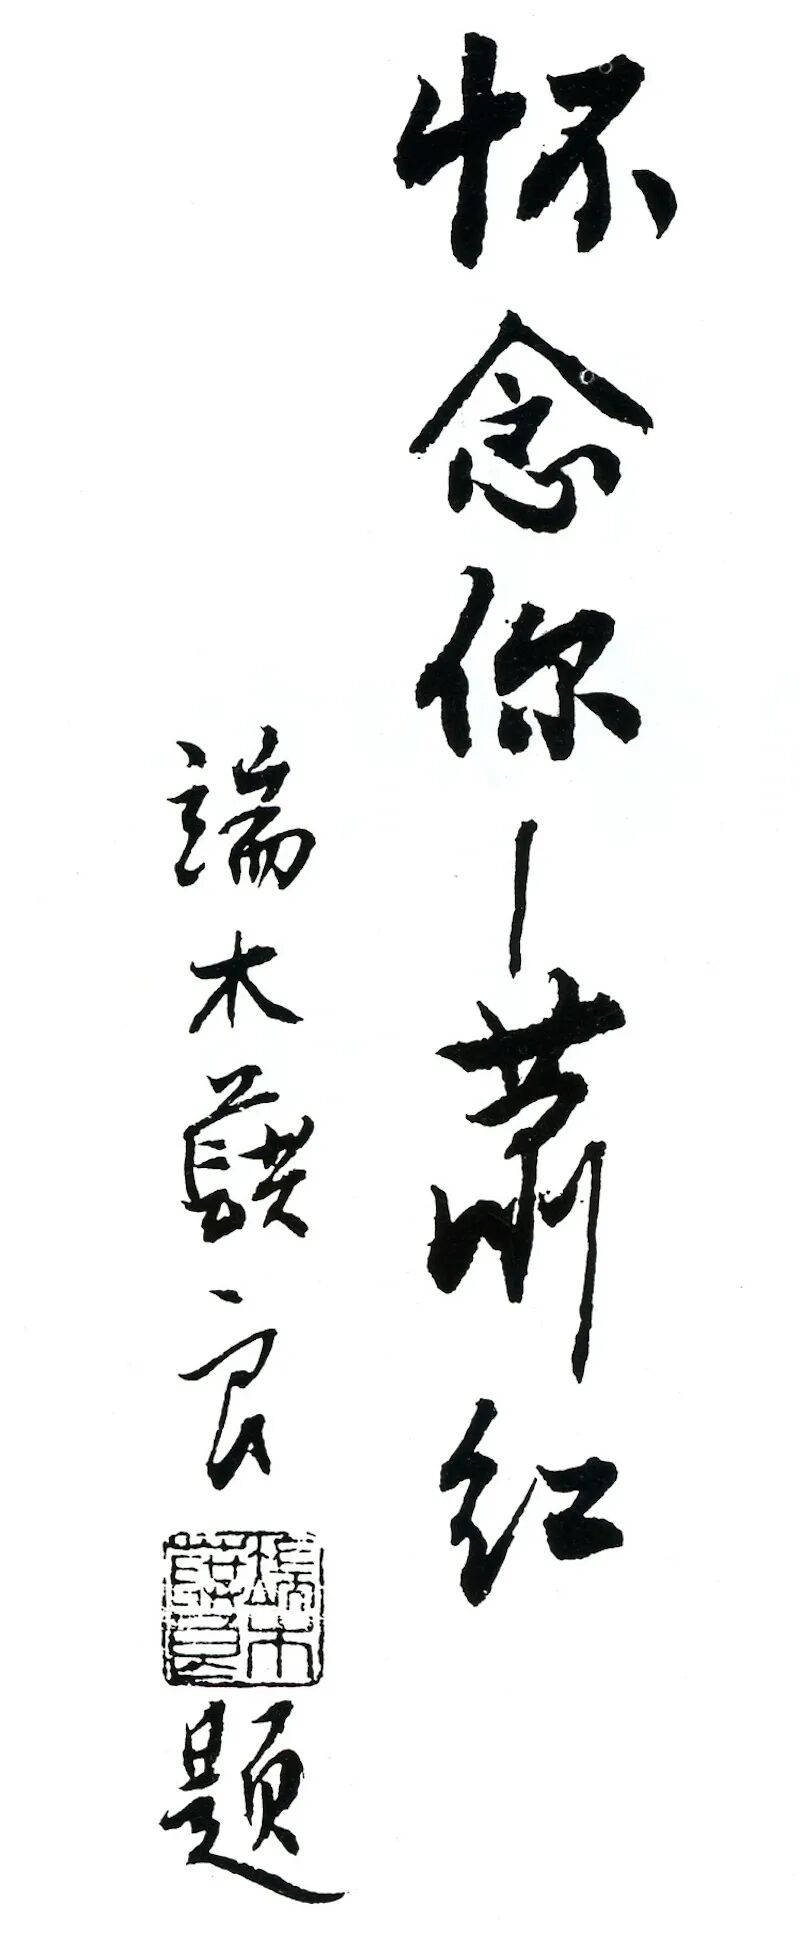 怀念你—萧红
端木蕻良
端木蕻良
题